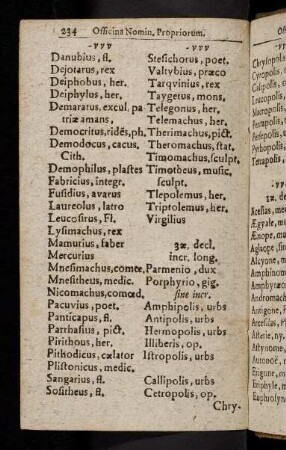 234 Officina Nomin. Propriorum.
-υυυ
Danubius, fl.
Dejotarus, rex
Deiphobus, her.
Deiphylus, her.
Demararus, excul. pa
triæ amans,
Democritus, ridẽs, ph.
Demodocus, cacus.
Cith.
Demophilus, plastes
Fabricius, integr.
Fusidius, avarus
Laureolus, latro
Leucosirus, Fl.
Lysimachus, rex
Mamurius, faber
Mercurius
Mnesimachus, comœ.
Mnesitheus, medic.
Nicomachus, comœd.
Pacuvius, poet.
Panticapus, fl.
Parrhasius, pict.
Pirithous, her.
Pithodicus, cælator
Plistonicus, medic.
Sangarius, fl.
Sositheus, fl.
-υυυ
Stesichorus, poet.
Valtybius, præco
Tarqvinius, rex
Taygetus, mons.
Telegonus, her.
Telemachus, her.
Therimachus, pict.
Theromachus, stat.
Timomachus, sculpt.
Timotheus, music,
sculpt.
Tlepolemus, her.
Triptolemus, her.
Virgilius
3æ. decl.
incr. long.
Parmenio, dux
Porphyrio, gig.
sine incr.
Amphipolis, urbs
Antipolis, urbs
Hermopolis, urbs
Illiberis, op.
Istropolis, urbs
Callipolis, urbs
Cetropolis, op.
Chry-